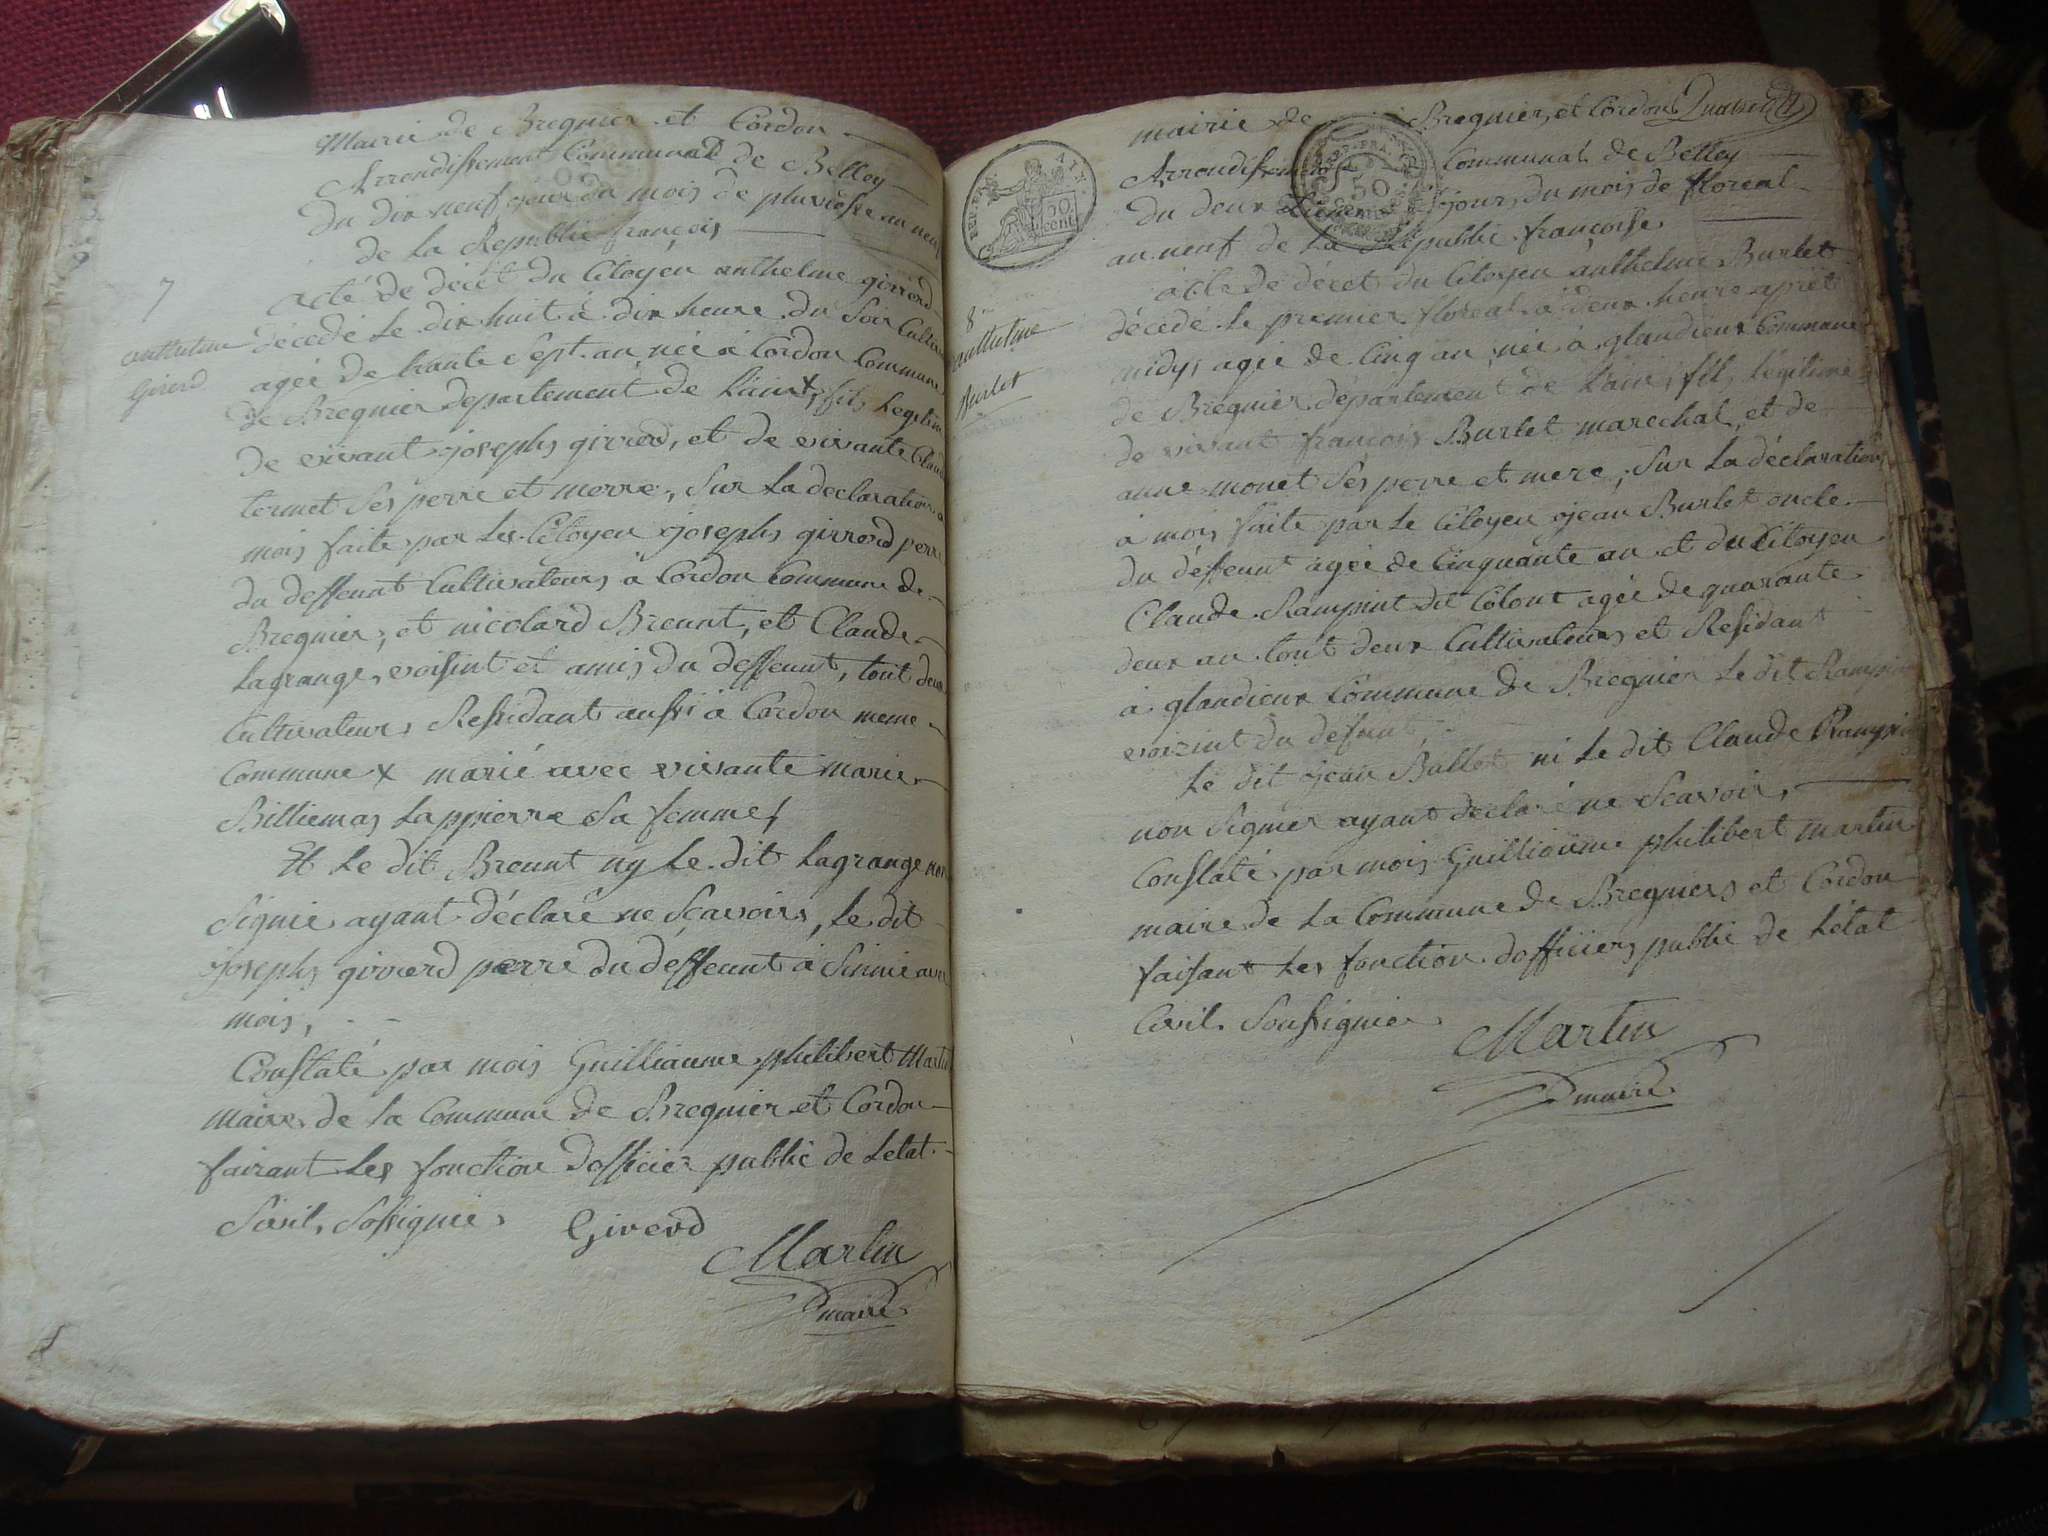 Mairie de Bregnier et Cordon
Arrondissement Communal de Belley
Du dix neuf jour du mois de pluviosse an neuf
de La Republic françois
7
anthelme
Girerd
Acte de decét du Citoyen anthelme girrerd
décédé Le dix huit à dix heure du Soir Cultiva
agée de trante Sept an née à Cordon Commune
de Bregnier departement de Liain x, fils Legitime
de vivant josephs girrerd, et de vivante Claud
termet Ses perre et merre, Sur La declaration a
mois faite par Les Citoyen josephs girrerd perre
du deffeunt Cultivateurs à Cordon Commune de
Bregnier, et nicolard Breunt, et Claude
Lagrange, voisint et amis du deffeunt, tout deux
Cultivateurs Ressidant aussi à Cordon meme
Commune x marié avec vivante marie
Billiemas Lappierre Sa femme,
Et Le dit Breunt ny Le dit Lagrange non
Signié ayant déclaré ne Sçavoirs, Le dit
josephs girrerd perre du deffeunt à Sinnié avec
mois,
Constaté par mois Guilliaume philibert Martin
Maire de La Commune de Bregnier et Cordon
fairant Les fonction Dofficier public de Letat
Sivil, Sossignié, Girerd
Martin
maire
REP. FRA. AIN.
50
cent
REP. FRA.
50
mairie de Bregnier, et Cordon
Arrondissement Communal de Belley
Du deux jours du mois de floreal
an neuf de La Republic françoise
8
anthelme
Burlet
acte de décet du Citoyen anthelme Burlet
décédé Le premier floreal à deux heure apriét
midy, agée de Cinq an née à glandieux Commune
de Bregnier département de Lain, fils Légitime
de vivant françois Burlet marechal, et de
anne monet Ses perre et mere, Sur La déclaration
à mois faite par Le Citoyen jean Burlet oncle
du déffeunt agée de Cinquante an et du Citoyen
Claude Rampint dit Colont agée de quarante
deux an tout deux Cultivateurs et Residant
à glandieux Commune de Bregnier Le dit Rampin
voizint du defunt,
Le dit jean Bullet ni Le dit Claude Rampin
non Signier ayant déclaré ne Scavoir,
Constaté par mois Guilliaume philibert martin
maire de La Commune de Bregniers et Cordon
faisant Les fonction dofficiers public de Létat
Civil Soussignier
Martin
maire